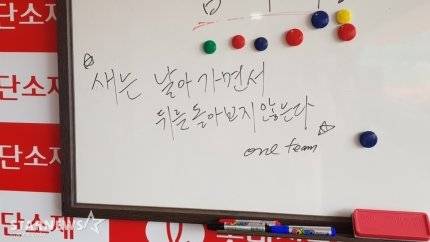 새는 날아가면서
뒤를 돌아보지 않는다
one team
단소재
단소재
단소재
STARNEWS